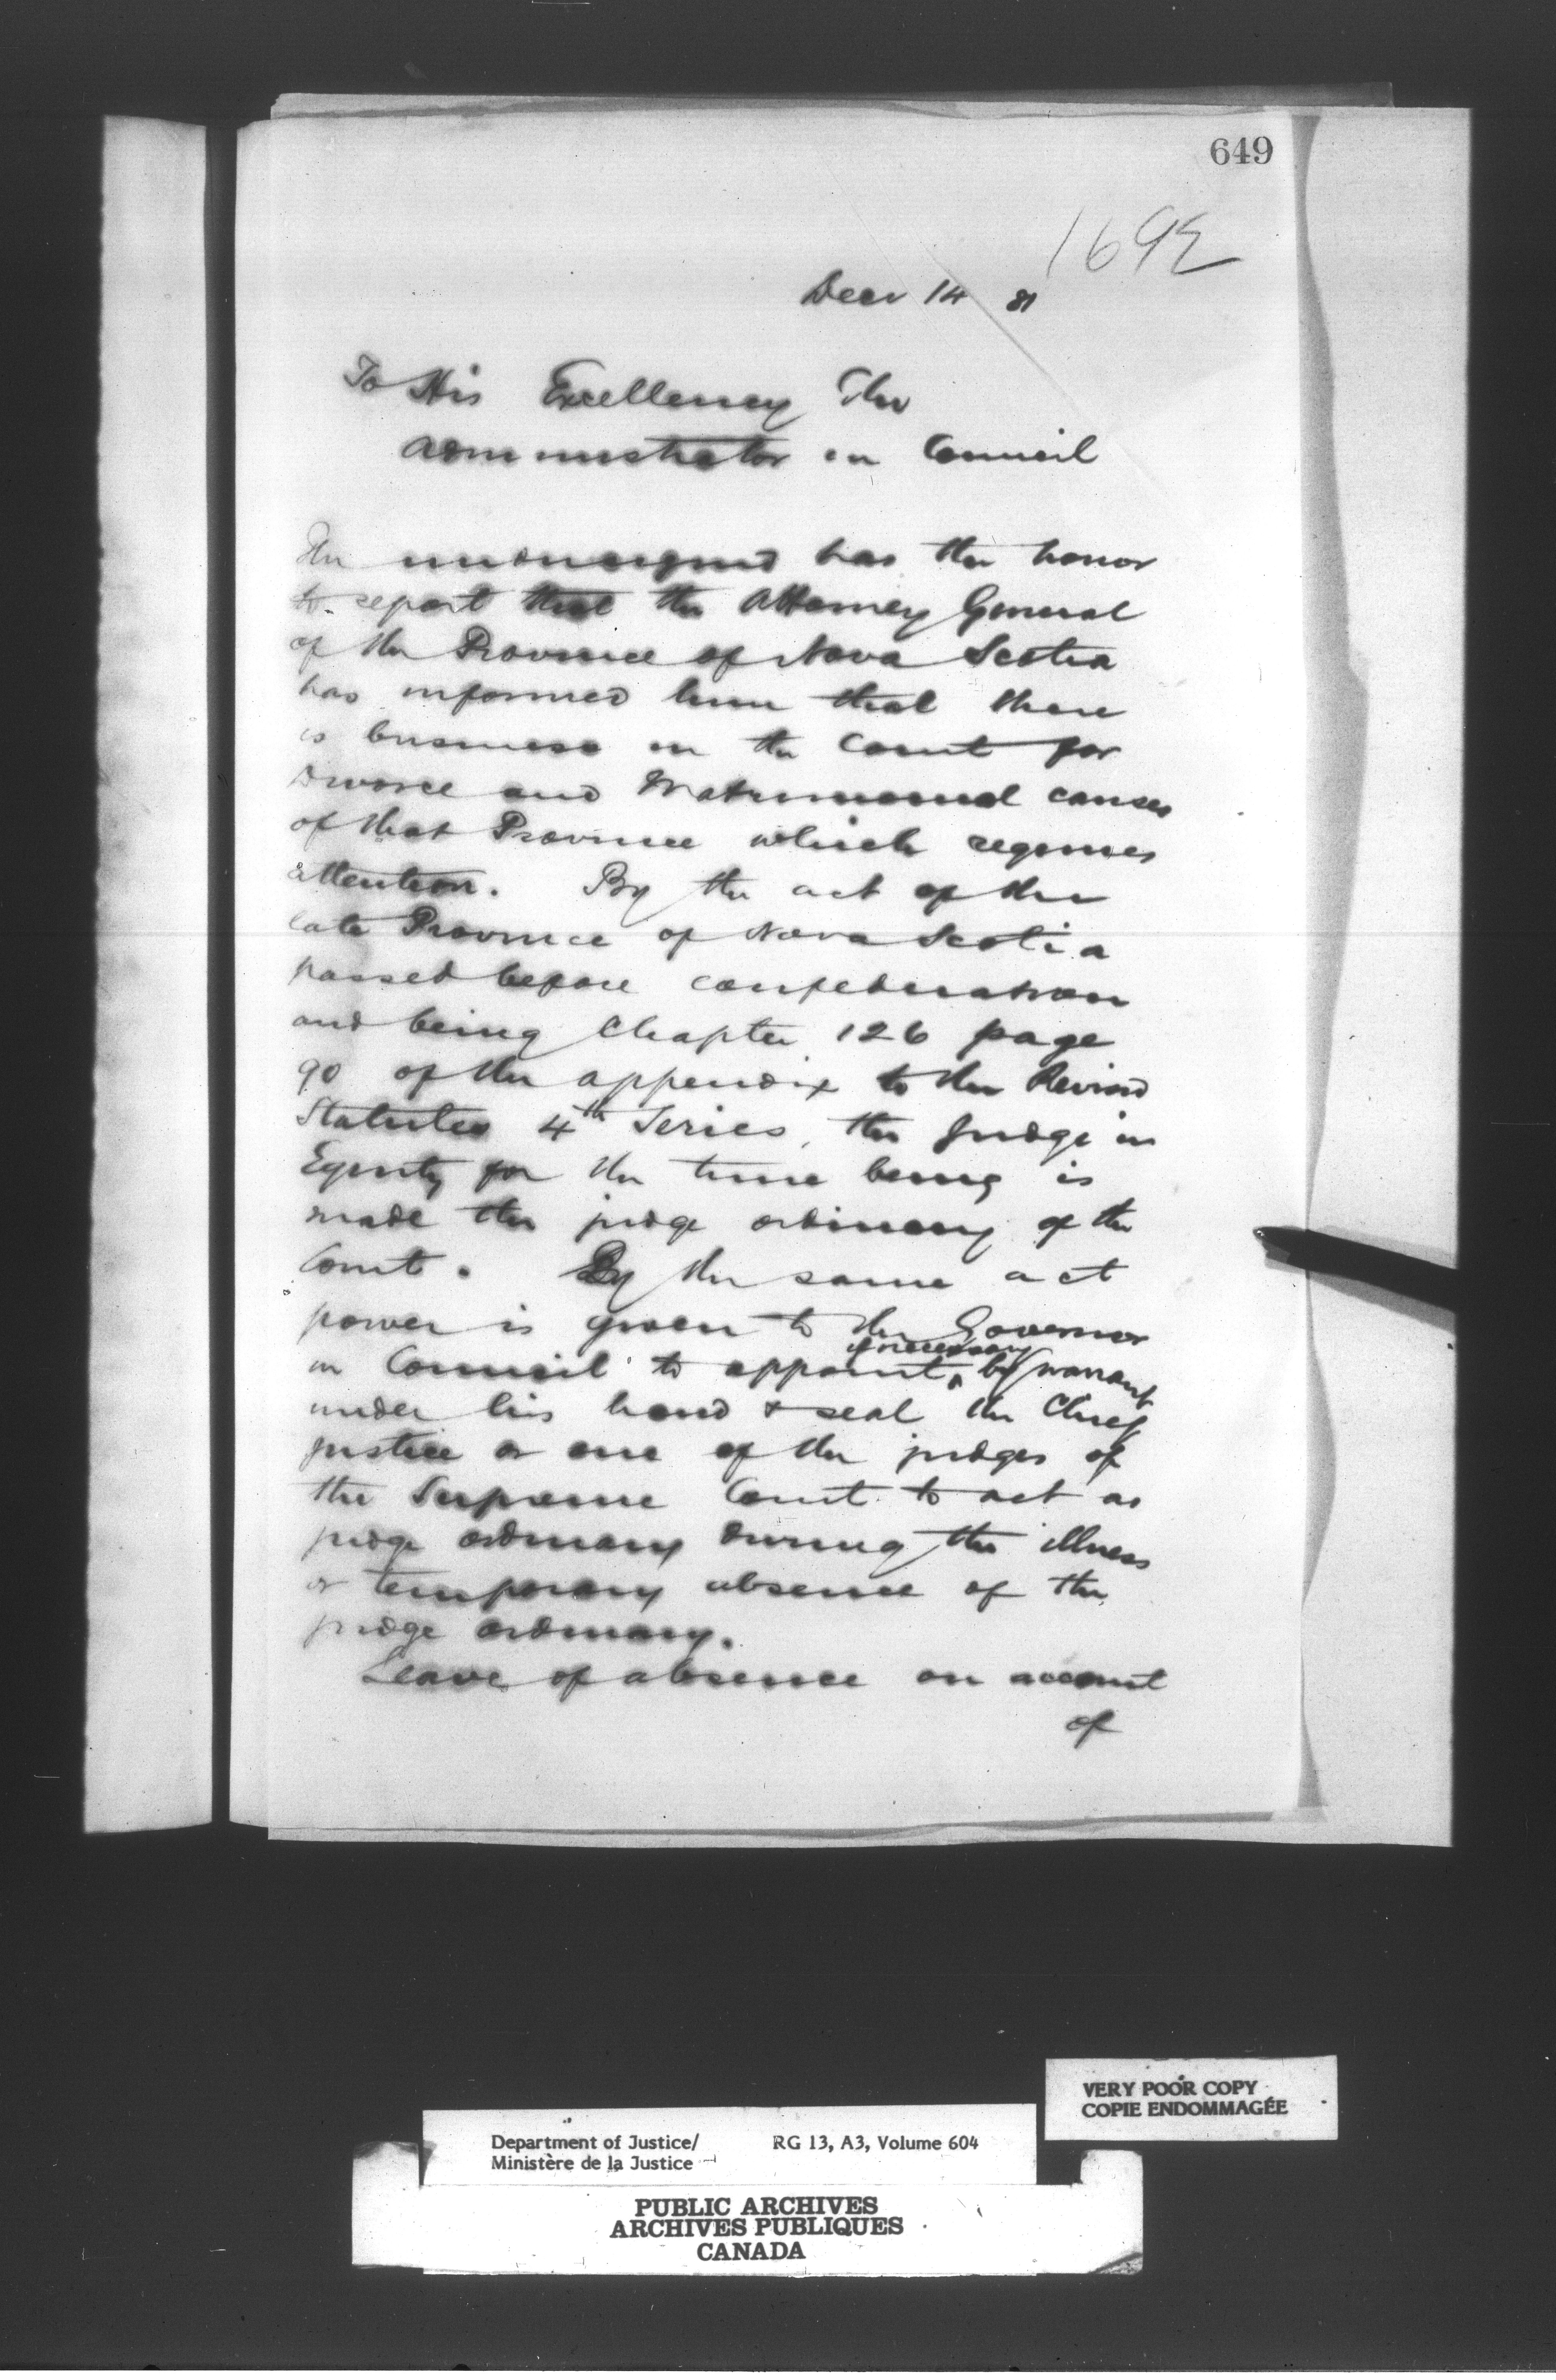 649
1692
Decr 14 81
To His Excellency The
Administrator in Council
The undersigned has the honor
to report that the Attorney General
of the Province of Nova Scotia
has informed him that there
is business in the Court for
Divorce and Matrimonial causes
of that Province which requires
attention. By the act of the
late Province of Nova Scotia
passed before confederation
and being Chapter 126 page
90 of the appendix to the Revised
Statutes 4th Series, the Judge in
Equity for the time being is
made the judge ordinary of the
Court. By the same act
power is given to the Governor
in Council to appoint, if necessary by warrant
under his hand & seal the Chief
Justice or one of the judges of
the Supreme Court to act as
judge ordinary during the illness
or temporary absence of the
judge ordinary.
Leave of absence on account
of
VERY POOR COPY
COPIE ENDOMMAGÉE
Department of Justice/ RG 13, A3, Volume 604
Ministère de la Justice
PUBLIC ARCHIVES
ARCHIVES PUBLIQUES
CANADA